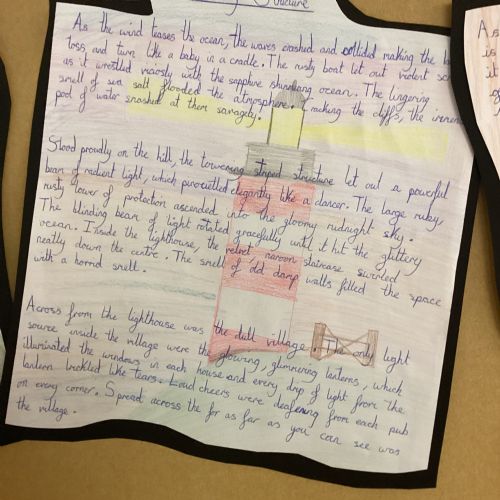 Structure
As the wind teases the ocean, the waves crashed and collided making the
toss and turn like a baby in a cradle. The rusty boat let out violent
as it wrestled viscorsly with the sapphire shimmering ocean. The lingering
smell of sea salt flooded the atmosphere. Cracking the cliffs, the
pool of water smashed at them savagely.
Stood proudly on the hill, the towering striped structure let out a powerful
beam of radient light, which elegantly like a dancer. The large ruby,
rusty tower of protection ascended into the gloomy midnight sky.
The blinding beam of light rotated gracefully until it hit the glittery
ocean. Inside the lighthouse, the velvet maroon staircase swirled
neatly down the centre. The smell of old damp walls filled the space
with a horrid smell.
Across from the lighthouse was the dull village. The only light
source inside the village were the glowing, glimmering lanterns, which
illuminated the windows in each house and every drip of light from the
lantern trickled like tears. Loud cheers were deafening from each pub
on every corner. Spread across the far as far as you can see was
the village.
As
is
it